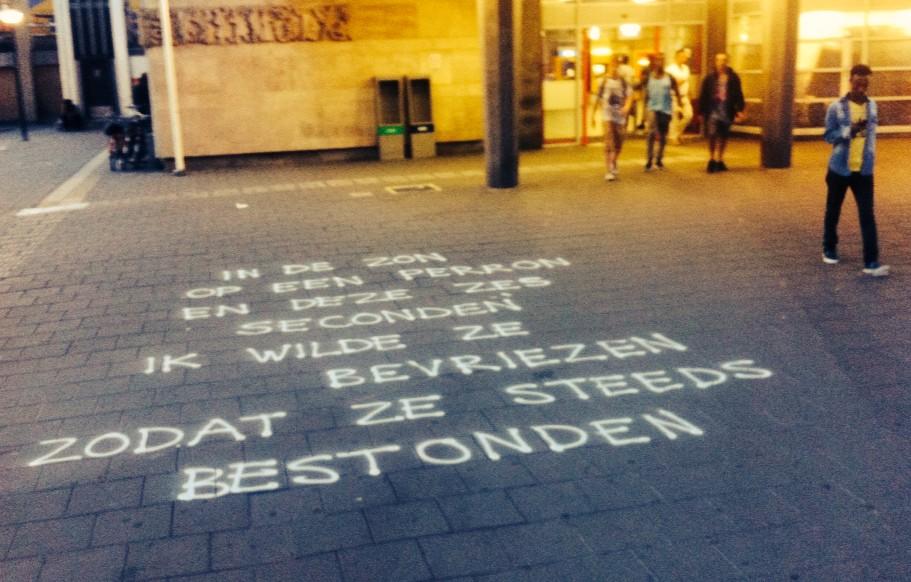 IN DE ZON
OP EEN PERRON
EN DEZE ZES
SECONDEN
IK WILDE ZE
BEVRIEZEN
ZODAT ZE STEEDS
BESTONDEN